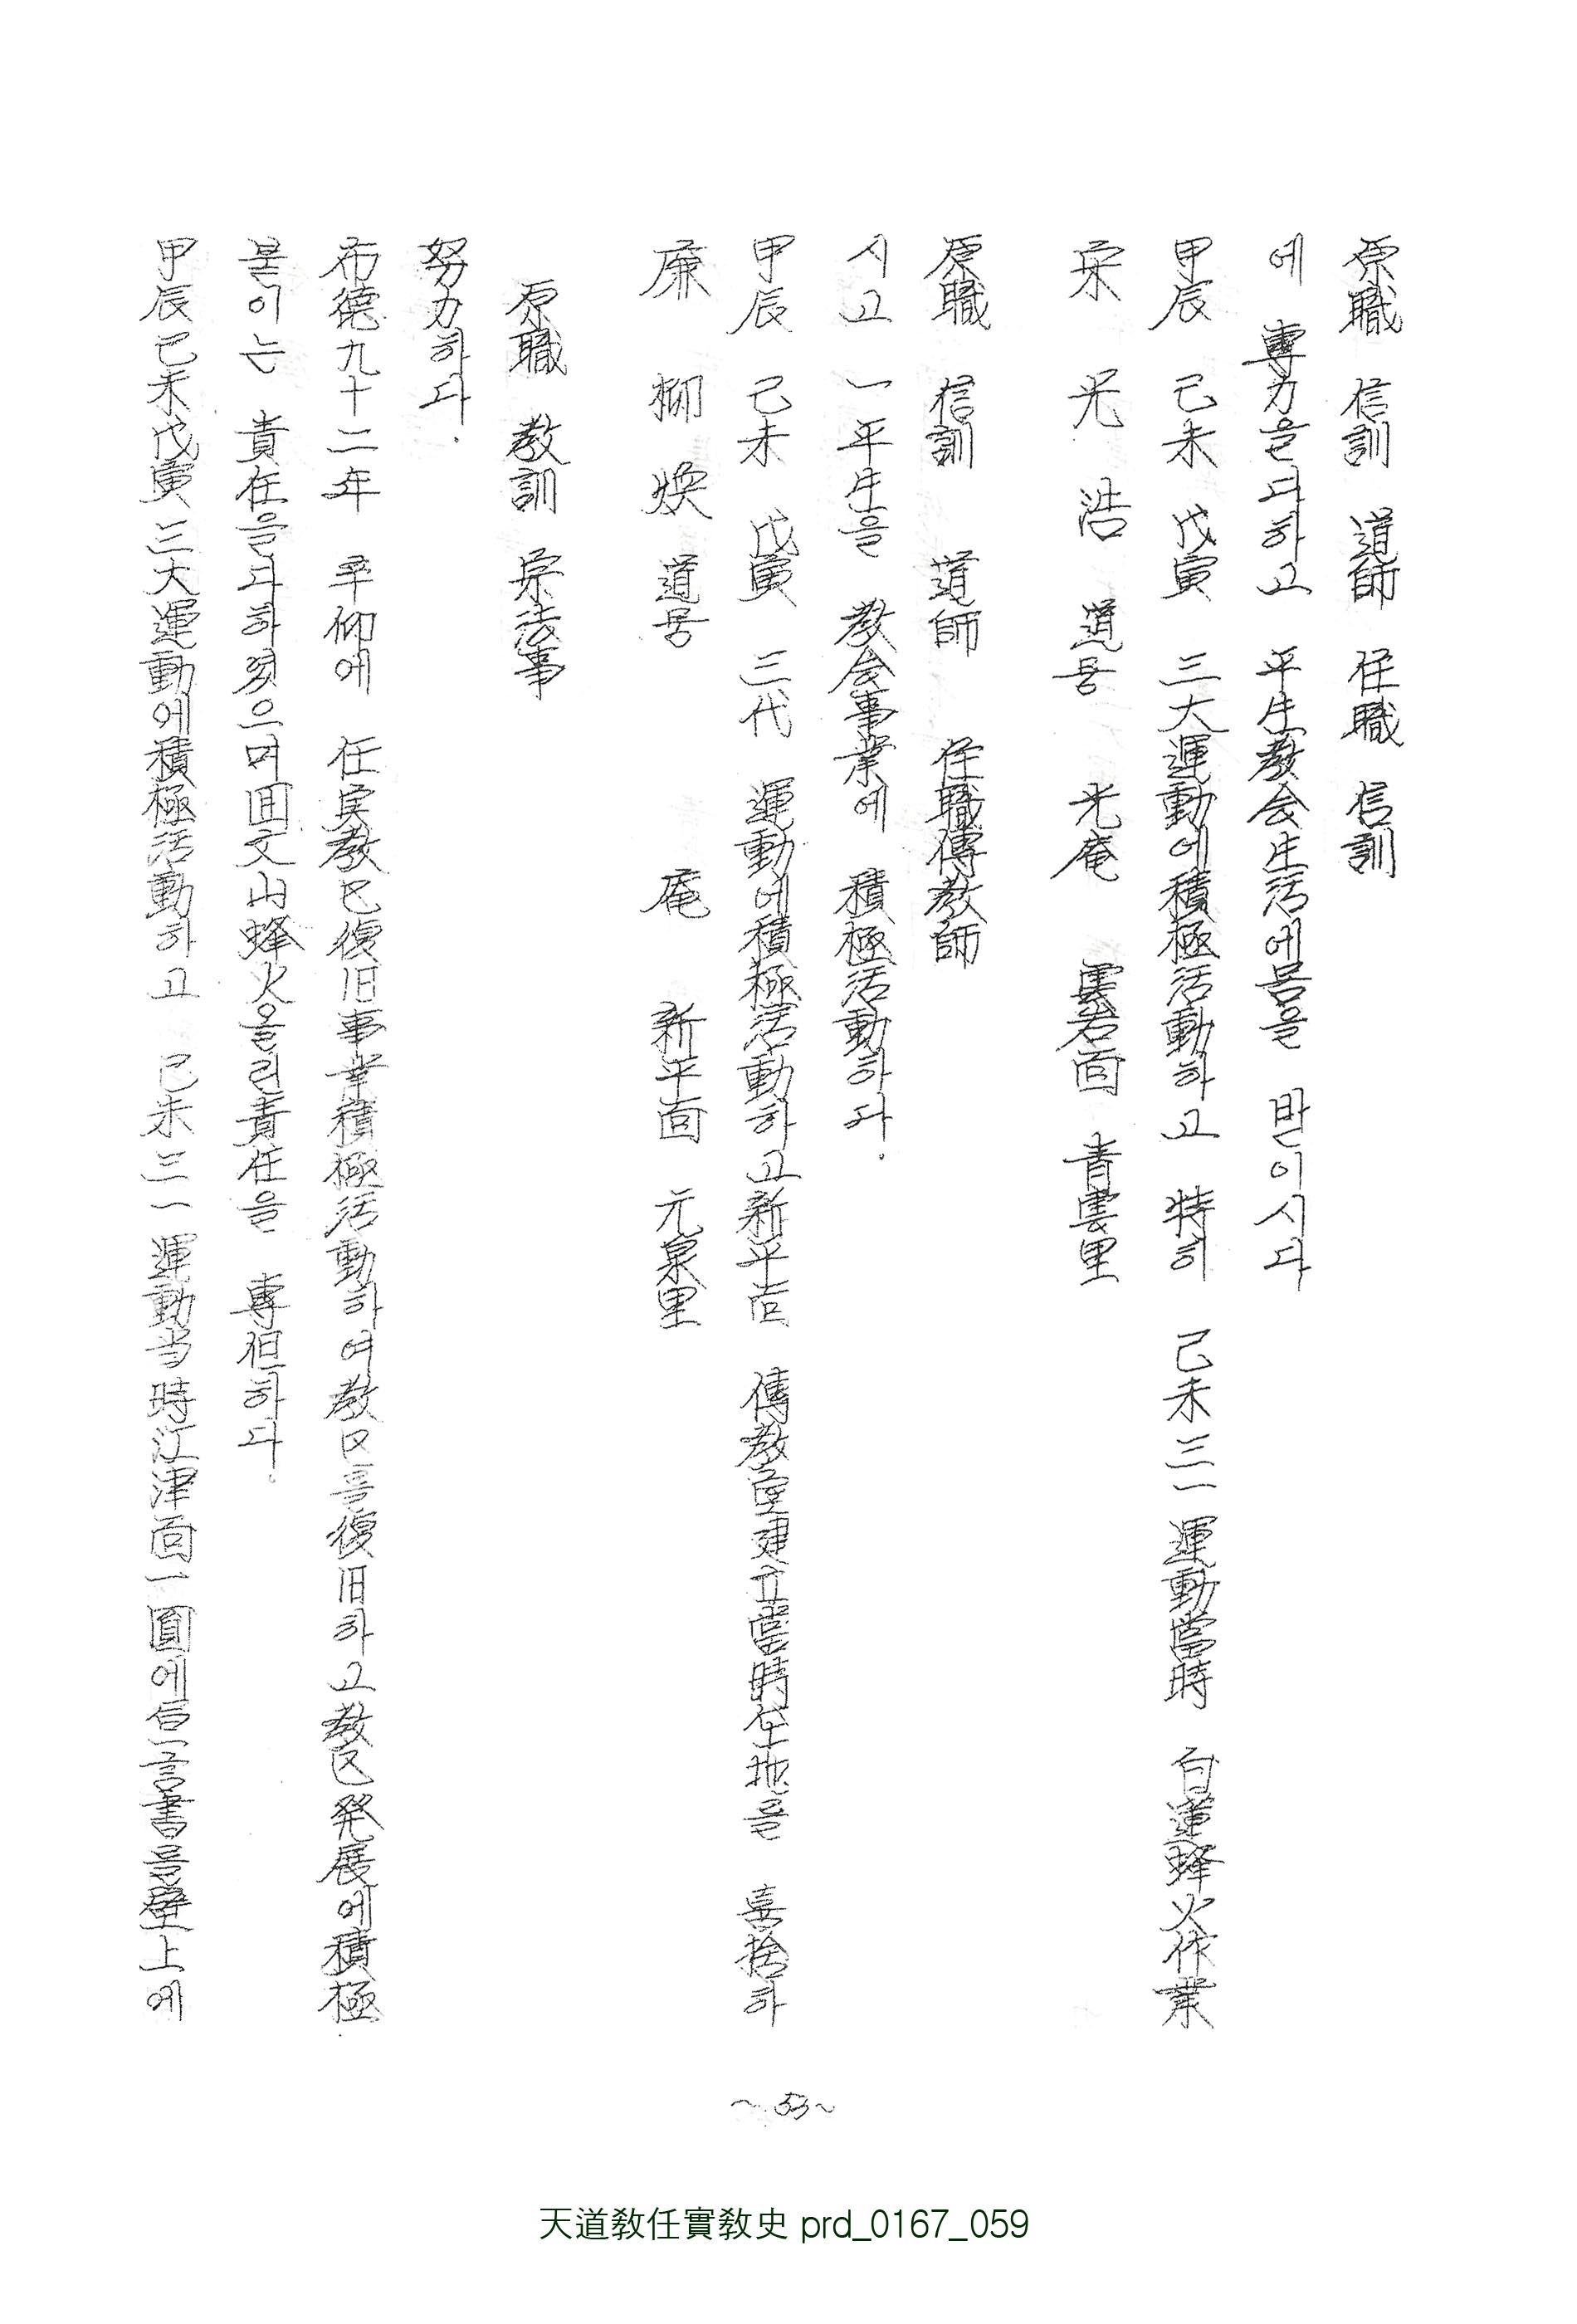 甲辰己未戊寅三大運動에積極活動하고 己未三一運動当時江津面一圓에宣言書를壁上에
붙이는 責任을다하였으며回文山蜂火올린責任을 專担하다.
布德九十二年 平仰에 任実教区復旧事業積極活動하여教区를復旧하고教区発展에積極
努力하다.
原職 教訓 宗法事
廉 柳 煥 道号 庵 新平面 元泉里
甲辰 己未 戊寅 三代 運動에積極活動하고新平面 傳教室建立當時垈地를 喜捨하
시고 一平生을 教会事業에 積極活動하다.
原職 信訓 道師 任職傳教師
宋 光 浩 道号 光庵 雲岩面 青雲里
甲辰 己未 戊寅 三大運動에積極活動하고 特히 己未三一運動當時 白蓮蜂火作業
에 專力을다하고 平生教会生活에몸을 받이시다
原職 信訓 道師 任職 信訓
~53~
天道敎任實敎史 prd_0167_059